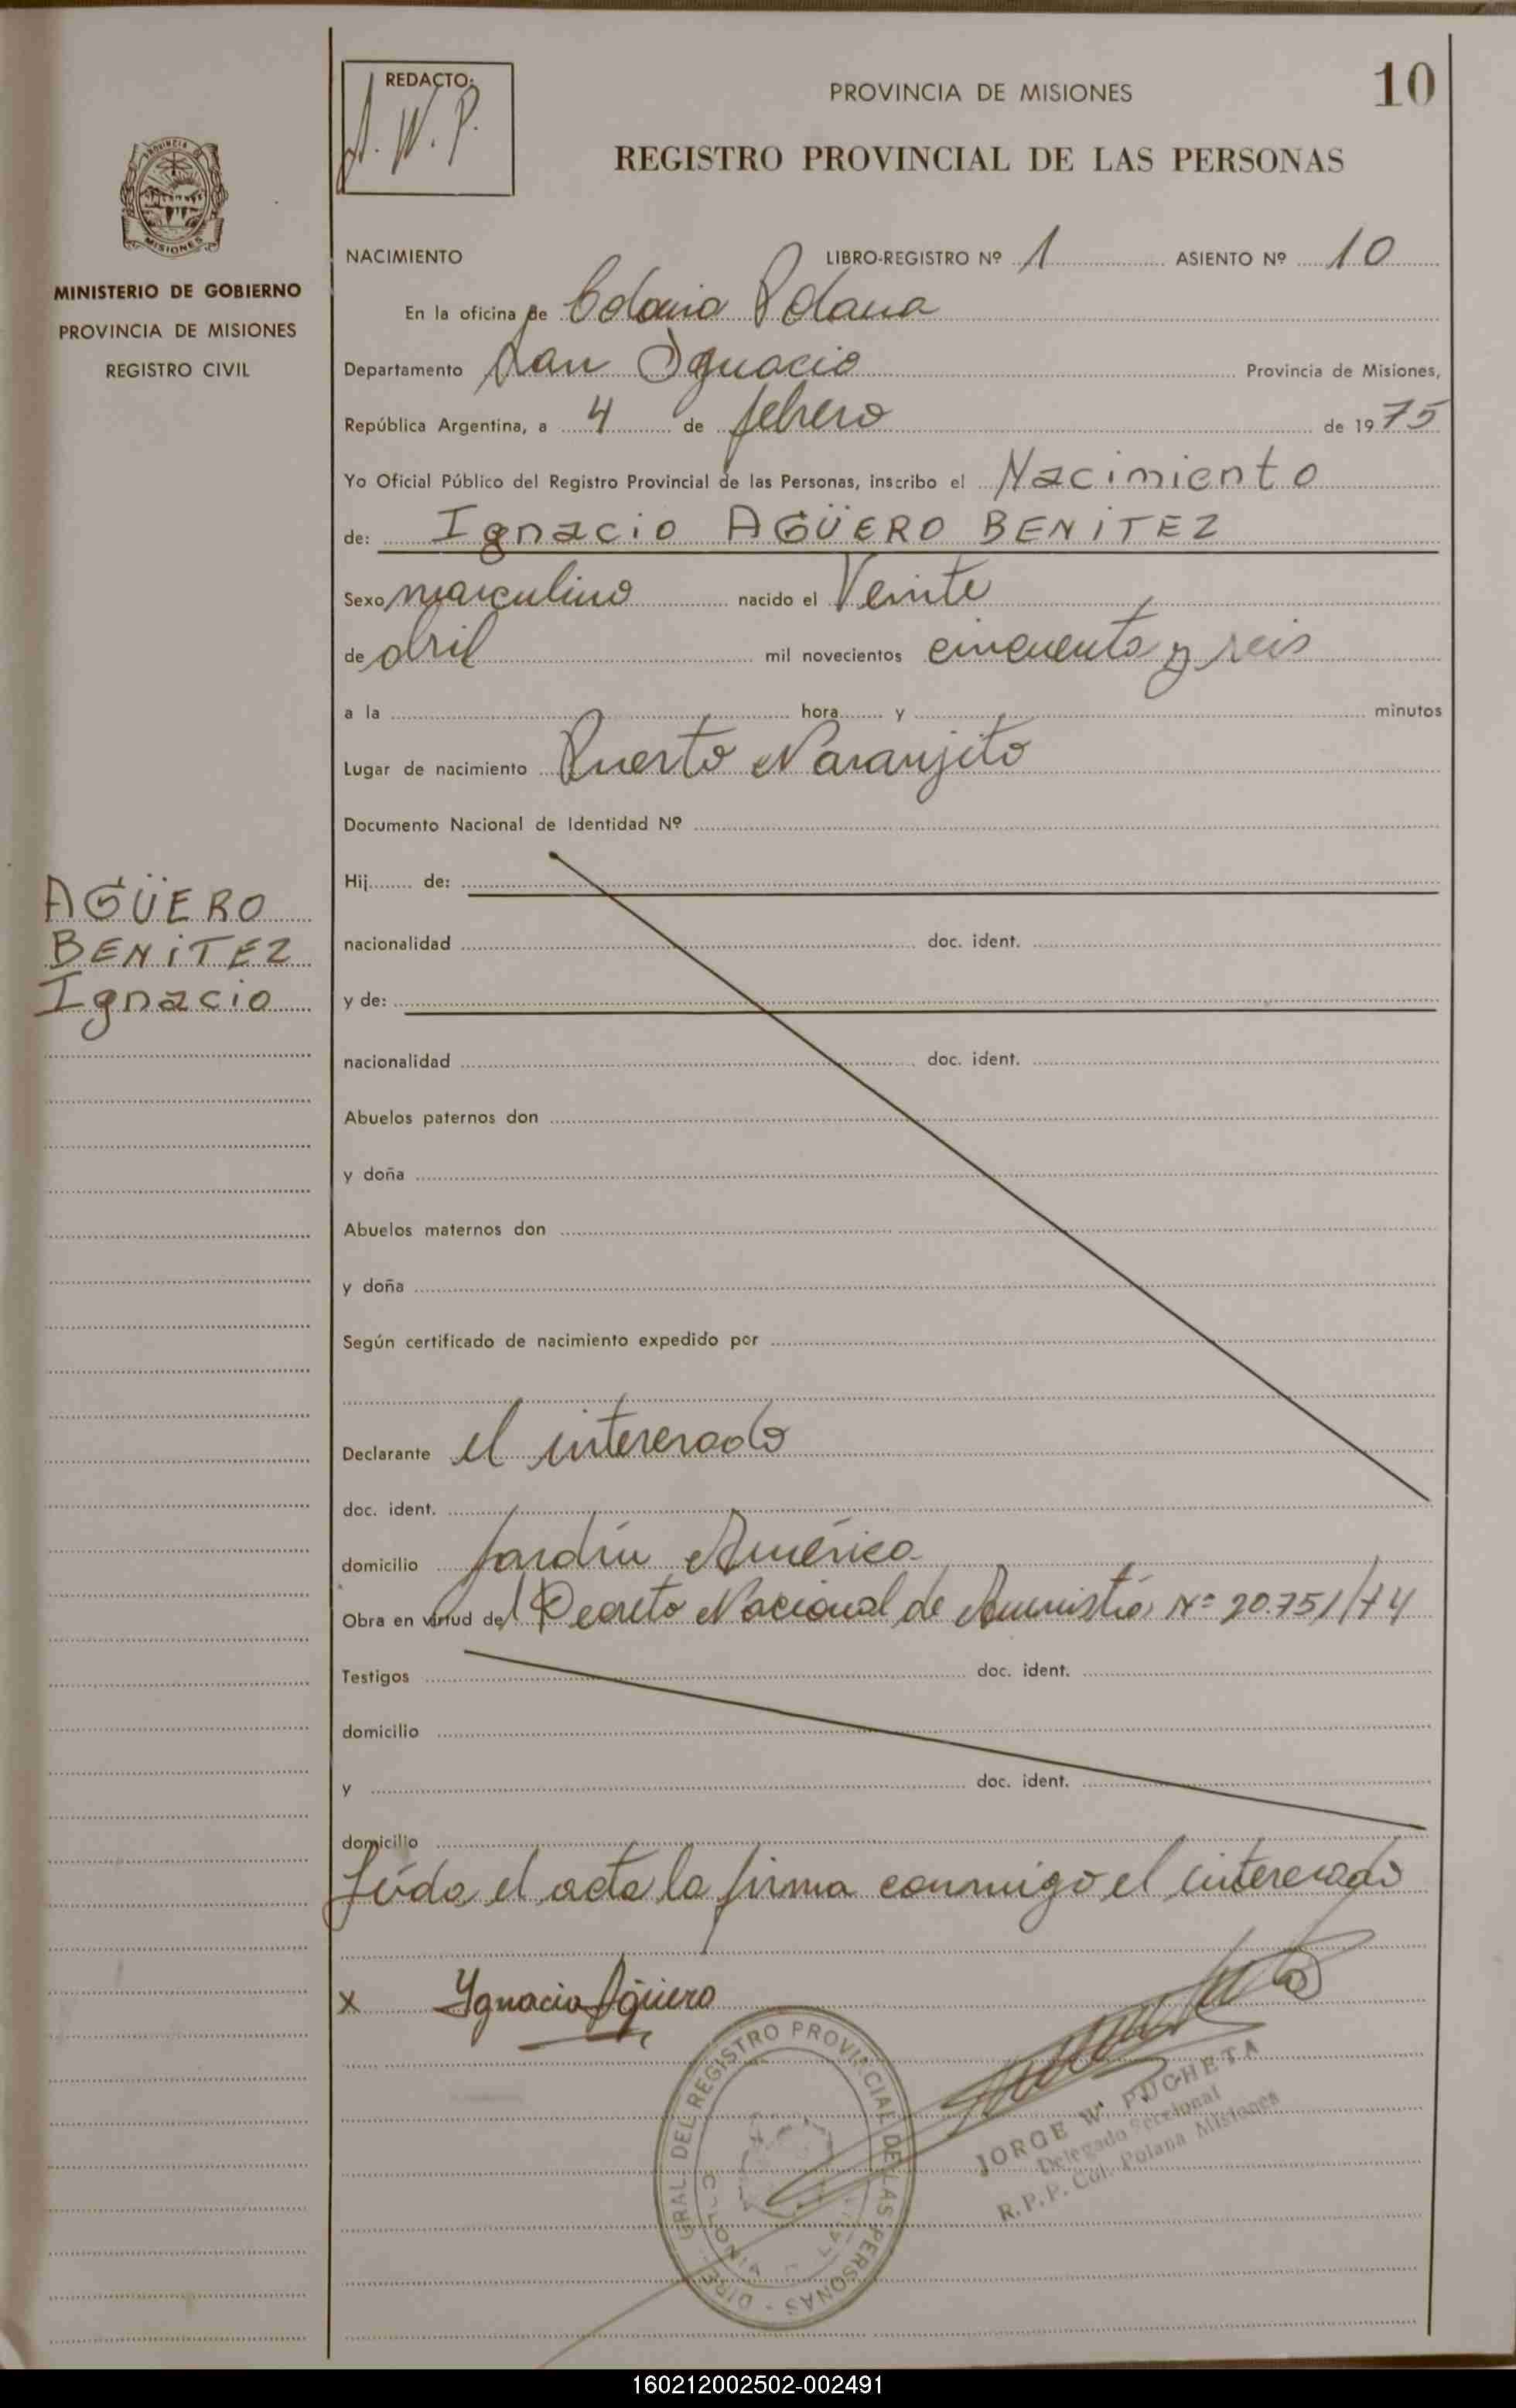 REDACTO:
J. W. P.
PROVINCIA DE MISIONES
10
REGISTRO PROVINCIAL DE LAS PERSONAS
MISIONES
MINISTERIO DE GOBIERNO
PROVINCIA DE MISIONES
REGISTRO CIVIL
NACIMIENTO LIBRO-REGISTRO Nº 1 ASIENTO Nº 10
En la oficina de Colonia Polana
Departamento San Ignacio Provincia de Misiones,
República Argentina, a 4 de febrero de 1975
Yo Oficial Público del Registro Provincial de las Personas, inscribo el Nacimiento
de: Ignacio AGÜERO BENITEZ
Sexo masculino nacido el Veinte
de abril mil novecientos cincuenta y seis
a la hora y minutos
Lugar de nacimiento Puerto Naranjito
Documento Nacional de Identidad Nº
AGÜERO
BENITEZ
Ignacio
Hij de:
nacionalidad doc. ident.
y de:
nacionalidad doc. ident.
Abuelos paternos don
y doña
Abuelos maternos don
y doña
Según certificado de nacimiento expedido por
Declarante el interesado
doc. ident.
domicilio Jardín América
Obra en virtud del Decreto Nacional de Amnistía Nº 20.751/74
Testigos doc. ident.
domicilio
y doc. ident.
domicilio
Leída el acta la firma conmigo el interesado
x Ygnacio Agüero
DIREC. GRAL. DEL REGISTRO PROVINCIAL DE LAS PERSONAS
JORGE W. PUCHETA
Delegado Seccional
R.P.P. Col. Polana Misiones
160212002502-002491